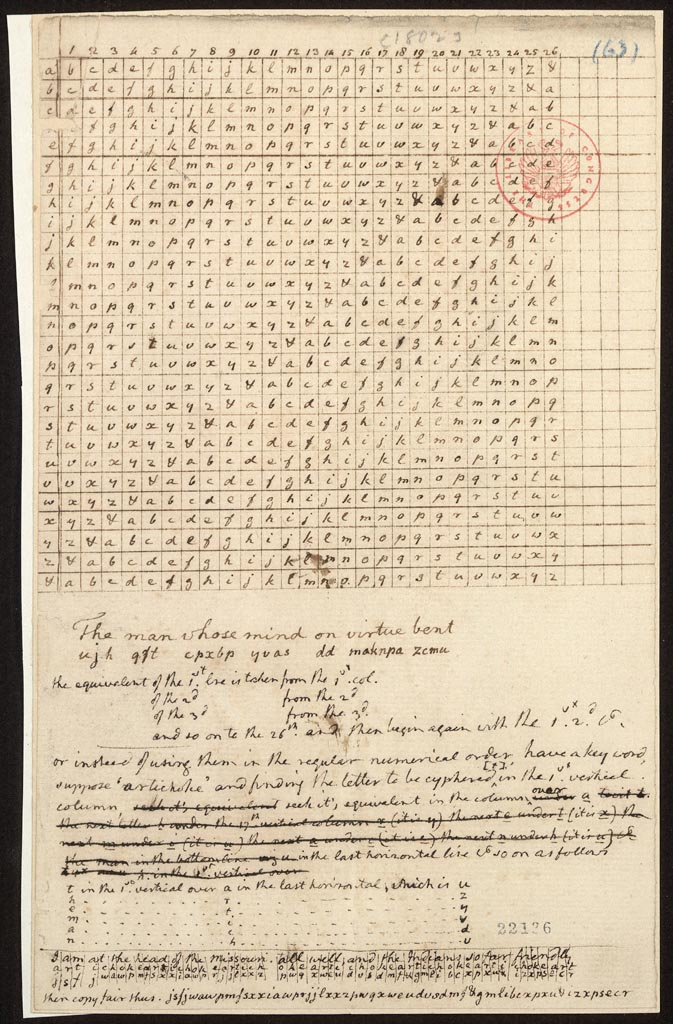 c1802?
(63)
1 2 3 4 5 6 7 8 9 10 11 12 13 14 15 16 17 18 19 20 21 22 23 24 25 26
a b c d e f g h i j k l m n o p q r s t u v w x y z &
b c d e f g h i j k l m n o p q r s t u v w x y z & a
c d e f g h i j k l m n o p q r s t u v w x y z & a b
e f g h i j k l m n o p q r s t u v w x y z & a b c
e f g h i j k l m n o p q r s t u v w x y z & a b c d
f g h i j k l m n o p q r s t u v w x y z & a b c d e
g h i j k l m n o p q r s t u v w x y z & a b c d e f
h i j k l m n o p q r s t u v w x y z & a b c d e f g
i j k l m n o p q r s t u v w x y z & a b c d e f g h
j k l m n o p q r s t u v w x y z & a b c d e f g h i
k l m n o p q r s t u v w x y z & a b c d e f g h i j
l m n o p q r s t u v w x y z & a b c d e f g h i j k
m n o p q r s t u v w x y z & a b c d e f g h i j k l
n o p q r s t u v w x y z & a b c d e f g h i j k l m
o p q r s t u v w x y z & a b c d e f g h i j k l m n
p q r s t u v w x y z & a b c d e f g h i j k l m n o
q r s t u v w x y z & a b c d e f g h i j k l m n o p
r s t u v w x y z & a b c d e f g h i j k l m n o p q
s t u v w x y z & a b c d e f g h i j k l m n o p q r
t u v w x y z & a b c d e f g h i j k l m n o p q r s
u v w x y z & a b c d e f g h i j k l m n o p q r s t
v w x y z & a b c d e f g h i j k l m n o p q r s t u
w x y z & a b c d e f g h i j k l m n o p q r s t u v
x y z & a b c d e f g h i j k l m n o p q r s t u v w
y z & a b c d e f g h i j k l m n o p q r s t u v w x
z & a b c d e f g h i j k l m n o p q r s t u v w x y
& a b c d e f g h i j k l m n o p q r s t u v w x y z
The man whose mind on virtue bent
ujh qft cpxbp yvas dd maknpa zcmu
the equivalent of the 1st. lre is taken from the 1st. col.
of the 2d from the 2d
of the 3d from the 3d.
and so on to the 26th. and then begin again with the 1st. 2d. &c.
or instead of using them in the regular numerical order, have a key word,
suppose 'artichoke' and finding the letter to be cyphered [t] in the 1st. vertical
column seek it's equivalent in the column over a
in the last horizontal line &c so on as follows
t in the 1st. vertical over a in the last horizontal, which is u
h r z
e t y
m i v
a c d
n h u
22136
I am at the head of the Missouri. all well, and the Indians so far friendly,
then copy fair thus. jsfjwawpmfsxxiawprjjlxxzpwqxweudusdmf&gmlibexpxu&izxpsecr